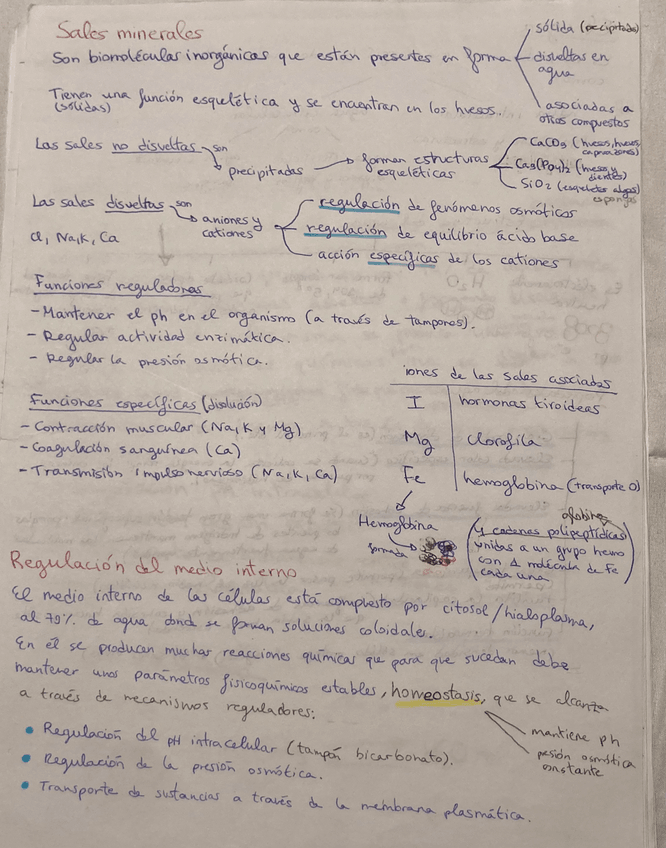 Sales minerales
Son biomoléculas inorgánicas que están presentes en forma
sólida (precipitada)
disueltas en
agua
asociadas a
otros compuestos
Tienen una función esquelética y se encuentran en los huesos.
(sólidas)
Las sales no disueltas son precipitadas → forman estructuras
esqueléticas
CaCO3 (huesos, huevos
caparazones)
Ca3(PO4)2 (huesos y
dientes)
SiO2 (esqueletos algas)
esponjas
Las sales disueltas son aniones y
cationes
Cl, Na, K, Ca
regulación de fenómenos osmóticos
regulación de equilibrio ácido base
acción específicas de los cationes
Funciones reguladoras
- Mantener el ph en el organismo (a través de tampones).
- Regular actividad enzimática.
- Regular la presión osmótica.
Funciones específicas (disolución)
- Contracción muscular (Na, K y Mg)
- Coagulación sanguínea (Ca)
- Transmisión impulso nervioso (Na, K, Ca)
iones de las sales asociadas
I hormonas tiroideas
Mg clorofila
Fe hemoglobina (transporte O)
Hemoglobina
formada
globina
4 cadenas polipeptídicas
unidas a un grupo hemo
con 1 molécula de Fe
cada una
Regulación del medio interno
El medio interno de las células está compuesto por citosol/hialoplasma,
al 70% de agua donde se forman soluciones coloidale.
En él se producen muchas reacciones químicas que para que sucedan debe
mantener unos parámetros fisicoquímicos estables, homeostasis, que se alcanza
a través de mecanismos reguladores:
• Regulación del pH intracelular (tampón bicarbonato).
• Regulación de la presión osmótica.
• Transporte de sustancias a través de la membrana plasmática.
mantiene ph
presión osmótica
constante